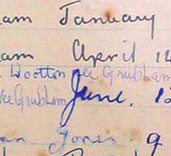 am January
am April 14
Wootton nee Grubham
nee Grubham June. 12
an Jones 9